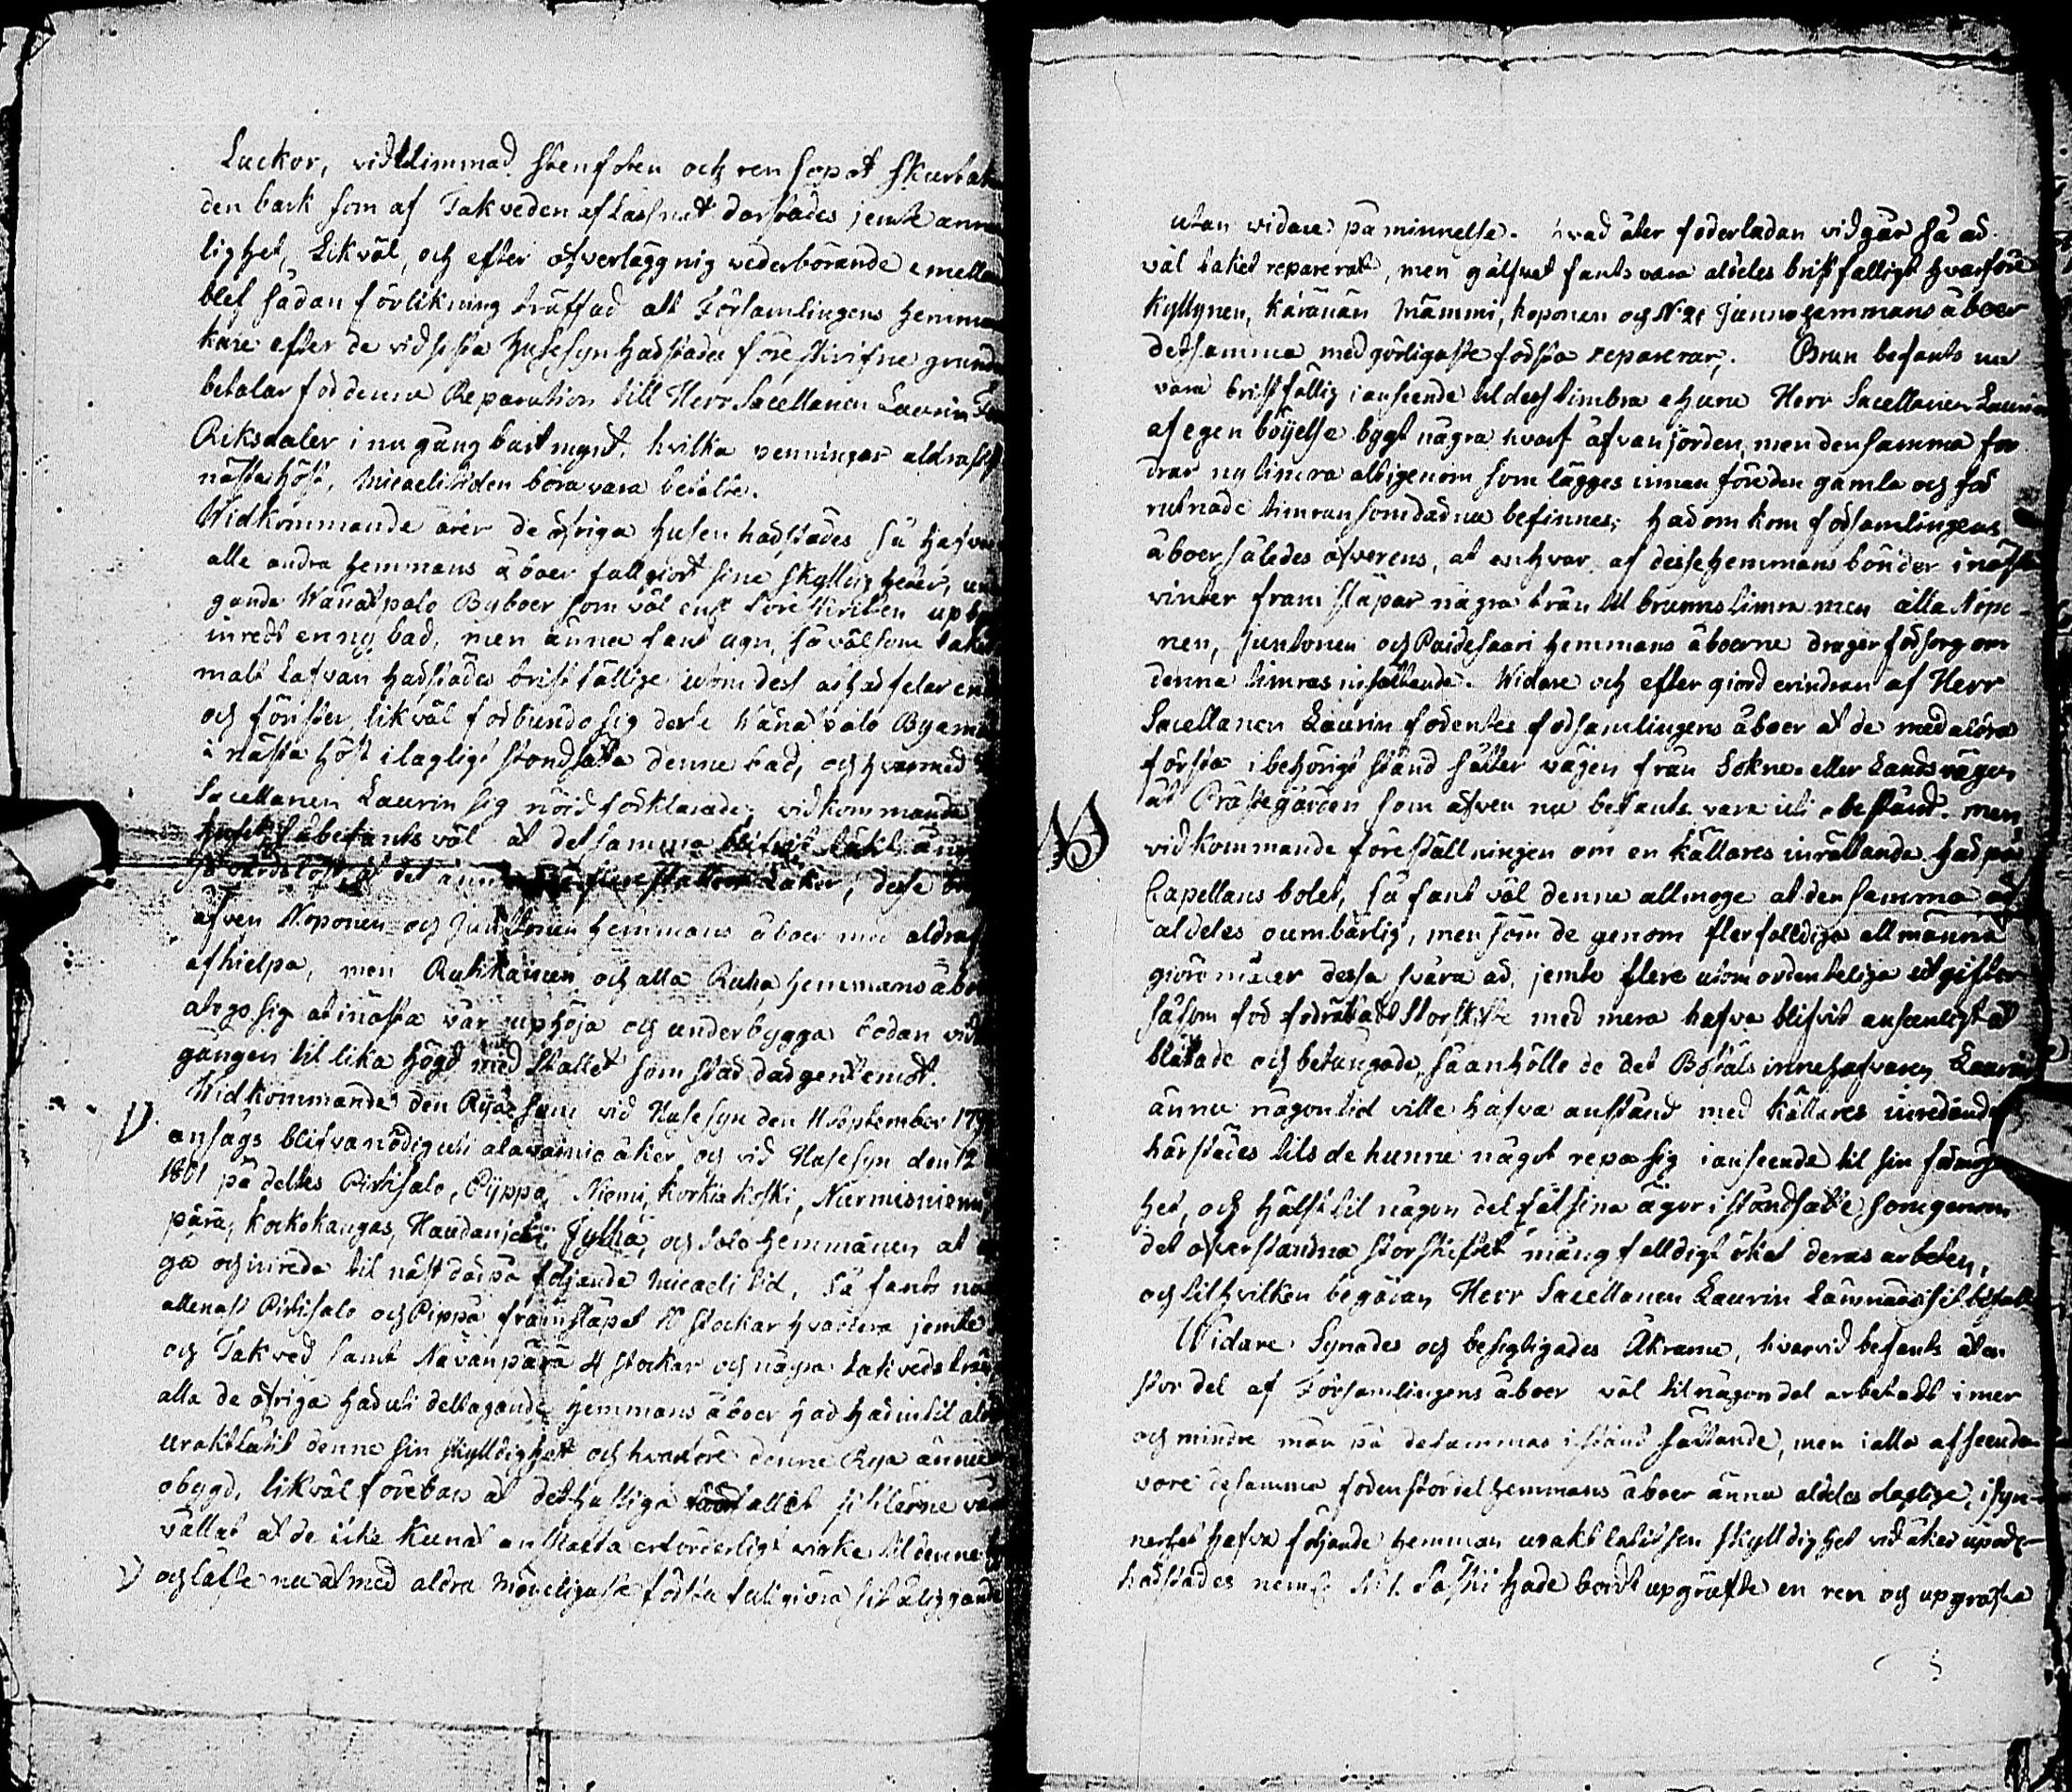 Luckor, vidtlimmad stenfoten och ren sopat
den bark som af Takveden aflassnat darstädes jemte
lighet, Likväl, och efter öfverläggnig vederbörande emellan
blef sådan förlikning träffad att Församlingens Hemman
kare efter de vid sista Husesyn härstädes föreskrifne grunder
betalar för denna Reparation till Herr Sacellanen Laurin
Riksdaler i nu gång bart mynt. hvilka penningar aldra
nästa höst, Micaeli tiden böra vara betalte.
Widkommande åter de öfriga husen härstädes så hafva
alle andra hemmans åboer fullgiort sine skylldigheter,
gande Wänälpalo Byboer som väl
inredt en ny bad, men ännu fans ugn, så väl som taket
malt Lafvan härstädes bristfällige utom dess
och fönster, likväl förbundo sig desse
i nästa höst i lagligt ståndsätta denne bad, och hvarmed
Sacellanen Laurin sig nöid förklarade; vidkommande
huset, så befants väl at det samma blifvit täckt,
så vårdslöst, at det ännu på flere ställen Läker, desse
äfven Noponen och Juntonen hemmans åboer med aldra
afhielpa, men Rukkainen och alla Ruha hemmans åboer
atogo sig at i nästa vår uphöja och underbygga bodan vid
gången til lika högd med Stallet som står där gent emot.
Widkommande den Rija som vid Husesyn den 11 September 179
ansågs blifva nödig uti alavainio åker och vid Husesyn den 12
1801 på deltes Pirtisalo, Pyppä, Niemi, Korkia Koski, Nurmisniemi
pärä, Kockokangas, Haudanjoki, Jylhä, och Salo hemmanen at
ga och inreda til näst därpå följande Micaeli tid, Så fants nu
allenast Pirtisalo och Pippä framsläpat 10 stockar hvardera jemte
och Takved samt Navänpärä 4 stockar och några takveds trän
alla de öfriga häruti deltagande hemmans åboer har härintil
uraktlåtit denne sin skylldighet och hvarföre denne Rija ännu är
obygd, likväl förebars at det hastiga
vållat at de icke kunat anskaffa erforderligt virke til denne
och lofte nu at med aldra möyeligaste första fullgiöra sit åliggande
utan vidare påminnelse. hvad åter foderladan vidgår så är
väl taket reparerat, men gålfvet fants vara aldeles bristfälligt hvarföre
Kyllynen, Käränän Mämmi, Koponen och N:o 21 Junno hemmans åboer
det samma med görligaste första reparerar. Brun befants nu
vara bristfällig i anseende til dess timbra ehuru Herr Sacellanen Laurin
af egen böijelse bygt några hvarf åfvan jorden, men den samma for
drar ny timra altigenom som lägges innan före den gamla och för
rutnade timran som där nu befinnes; härom kom församlingens
åboer således öfverens, at en hvar af desse hemmans bönder i nästa
vinter fram släpar några trän til brunns timra men alla Nopo-
nen, Juntonen och Paidesaari hemmans åboerne drager försorg om
denna timras insättande. Widare och efter giord erindran af Herr
Sacellanen Laurin förentes församlingens åboer at de med aldra
första i behörigt stånd sätter vägen från Sokne- eller Landsvägen
åt Prästegården som äfven nu befants vara uti obestånd. men
vidkommande föreställningen om en källares inrättande här på
Capellans bolet, så fant väl denne allmoge at den samma är
aldeles oumbärlig, men som de genom flerfalldige allmänna
giöromåler dessa svåra år, jemte flere utom ordenteliga utgifter
såsom för förrättadt Storskifte med mera hafva blifvit ansenligt
blåtade och betungade, så anhölle de det Boställs innehafvaren Laurin
ännu någon tid ville hafva anstånd med källares inredande
härstädes tils de hunne något repa sig i anseende til sin förmögen
het, och hälst til någon del fåt sina ägor i ståndsatte som genom
det öfverståndna storskiftet mångfalldigt ökat deras arbeten,
och til hvilken begäran Herr Sacellanen Laurin Lämnade sit bifall
Widare Synades och besigtigades Åkrarne, hvarvid befants at en
stor del af Församlingens åboer väl til någon del arbetadt i mer
och mindre mån på desammas i stånd sättande, men i alla afseenden
vore desamma för en stor del hemmans åboer ännu aldeles olaglige, i syn-
nerhet hafva följande hemman uraktlåtit sin skylldighet vid åker
härstädes neml. N:o 1. Saski hade bordt upgräfte en ren och upgräfva